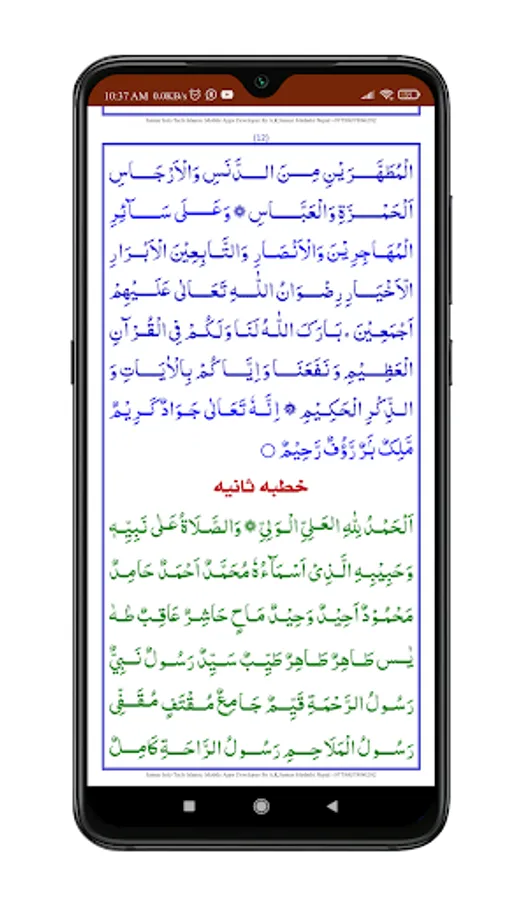 10:37 AM 0.0KB/s
(12)
الْمُطَهَّرَيْنِ مِنَ الدَّنَسِ وَالْاَرْجَاسِ
اَلْحَمْزَةِ وَالْعَبَّاسِ ۞ وَعَلٰى سَآئِرِ
الْمُهَاجِرِيْنَ وَالْاَنْصَارِ وَالتَّابِعِيْنَ الْاَبْرَارِ
الْاَخْيَارِ رِضْوَانُ اللّٰهِ تَعَالٰى عَلَيْهِمْ
اَجْمَعِيْنَ ، بَارَكَ اللّٰهُ لَنَا وَلَكُمْ فِى الْقُرْآنِ
الْعَظِيْمِ وَنَفَعَنَا وَاِيَّاكُمْ بِالْاٰيَاتِ وَ
الذِّكْرِ الْحَكِيْمِ ۞ اِنَّهٗ تَعَالٰى جَوَادٌ كَرِيْمٌ
مَّلِكٌ بَرٌّ رَّؤُفٌ رَّحِيْمٌ ○
خطبه ثانيه
اَلْحَمْدُ لِلّٰهِ الْعَلِيِّ الْوَلِيِّ ۞ وَالصَّلَاةُ عَلٰى نَبِيِّهٖ
وَحَبِيْبِهِ الَّذِىْ اَسْمَآءُهٗ مُحَمَّدٌ اَحْمَدٌ حَامِدٌ
مَحْمُوْدٌ اَحِيْدٌ وَحِيْدٌ مَاحٍ حَاشِرٌ عَاقِبٌ طٰهٰ
يٰس طَاهِرٌ طَاهِرٌ طَيِّبٌ سَيِّدٌ رَسُوْلٌ نَبِيٌّ
رَسُوْلُ الرَّحْمَةِ قَيِّمٌ جَامِعٌ مُقْتَفٍ مُقَفِّى
رَسُوْلُ الْمَلَاحِمِ رَسُوْلُ الرَّاحَةِ كَامِلٌ